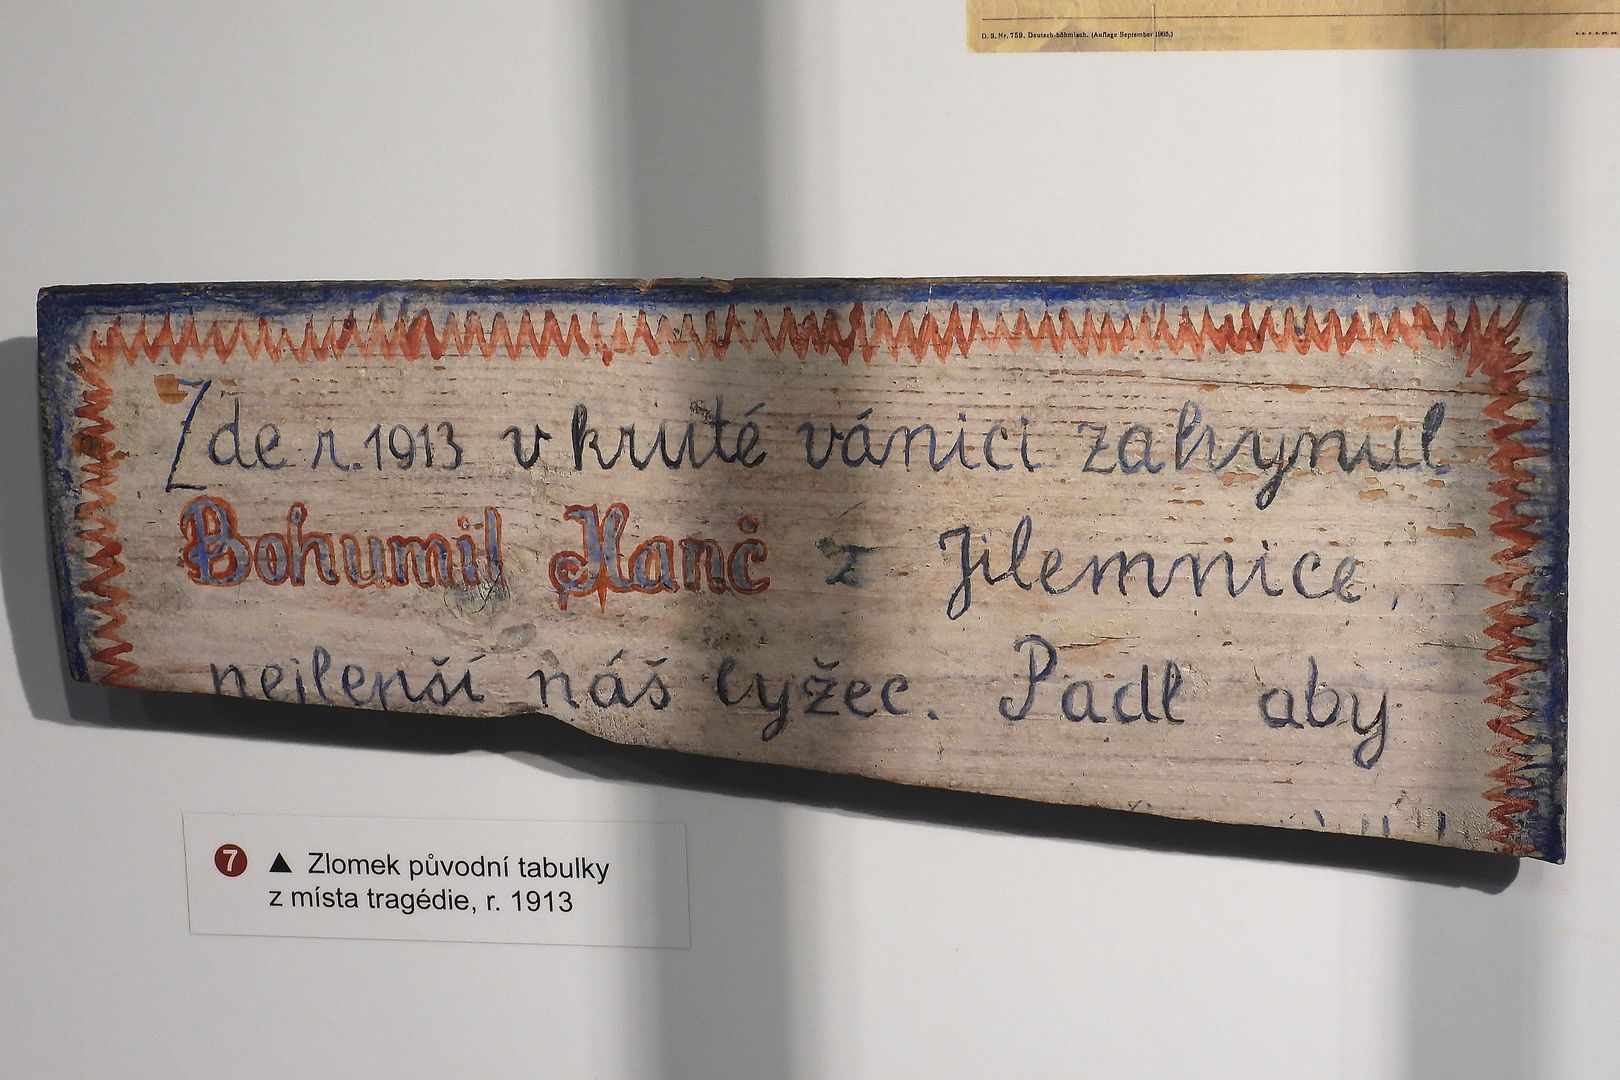 D. S. Nr. 759. Deutsch-böhmisch. (Auflage September 1905.)
Zde r. 1913 v kruté vánici zahynul
Bohumil Hanč z Jilemnice,
nejlepší náš lyžec. Padl aby
7 ▲ Zlomek původní tabulky
z místa tragédie, r. 1913